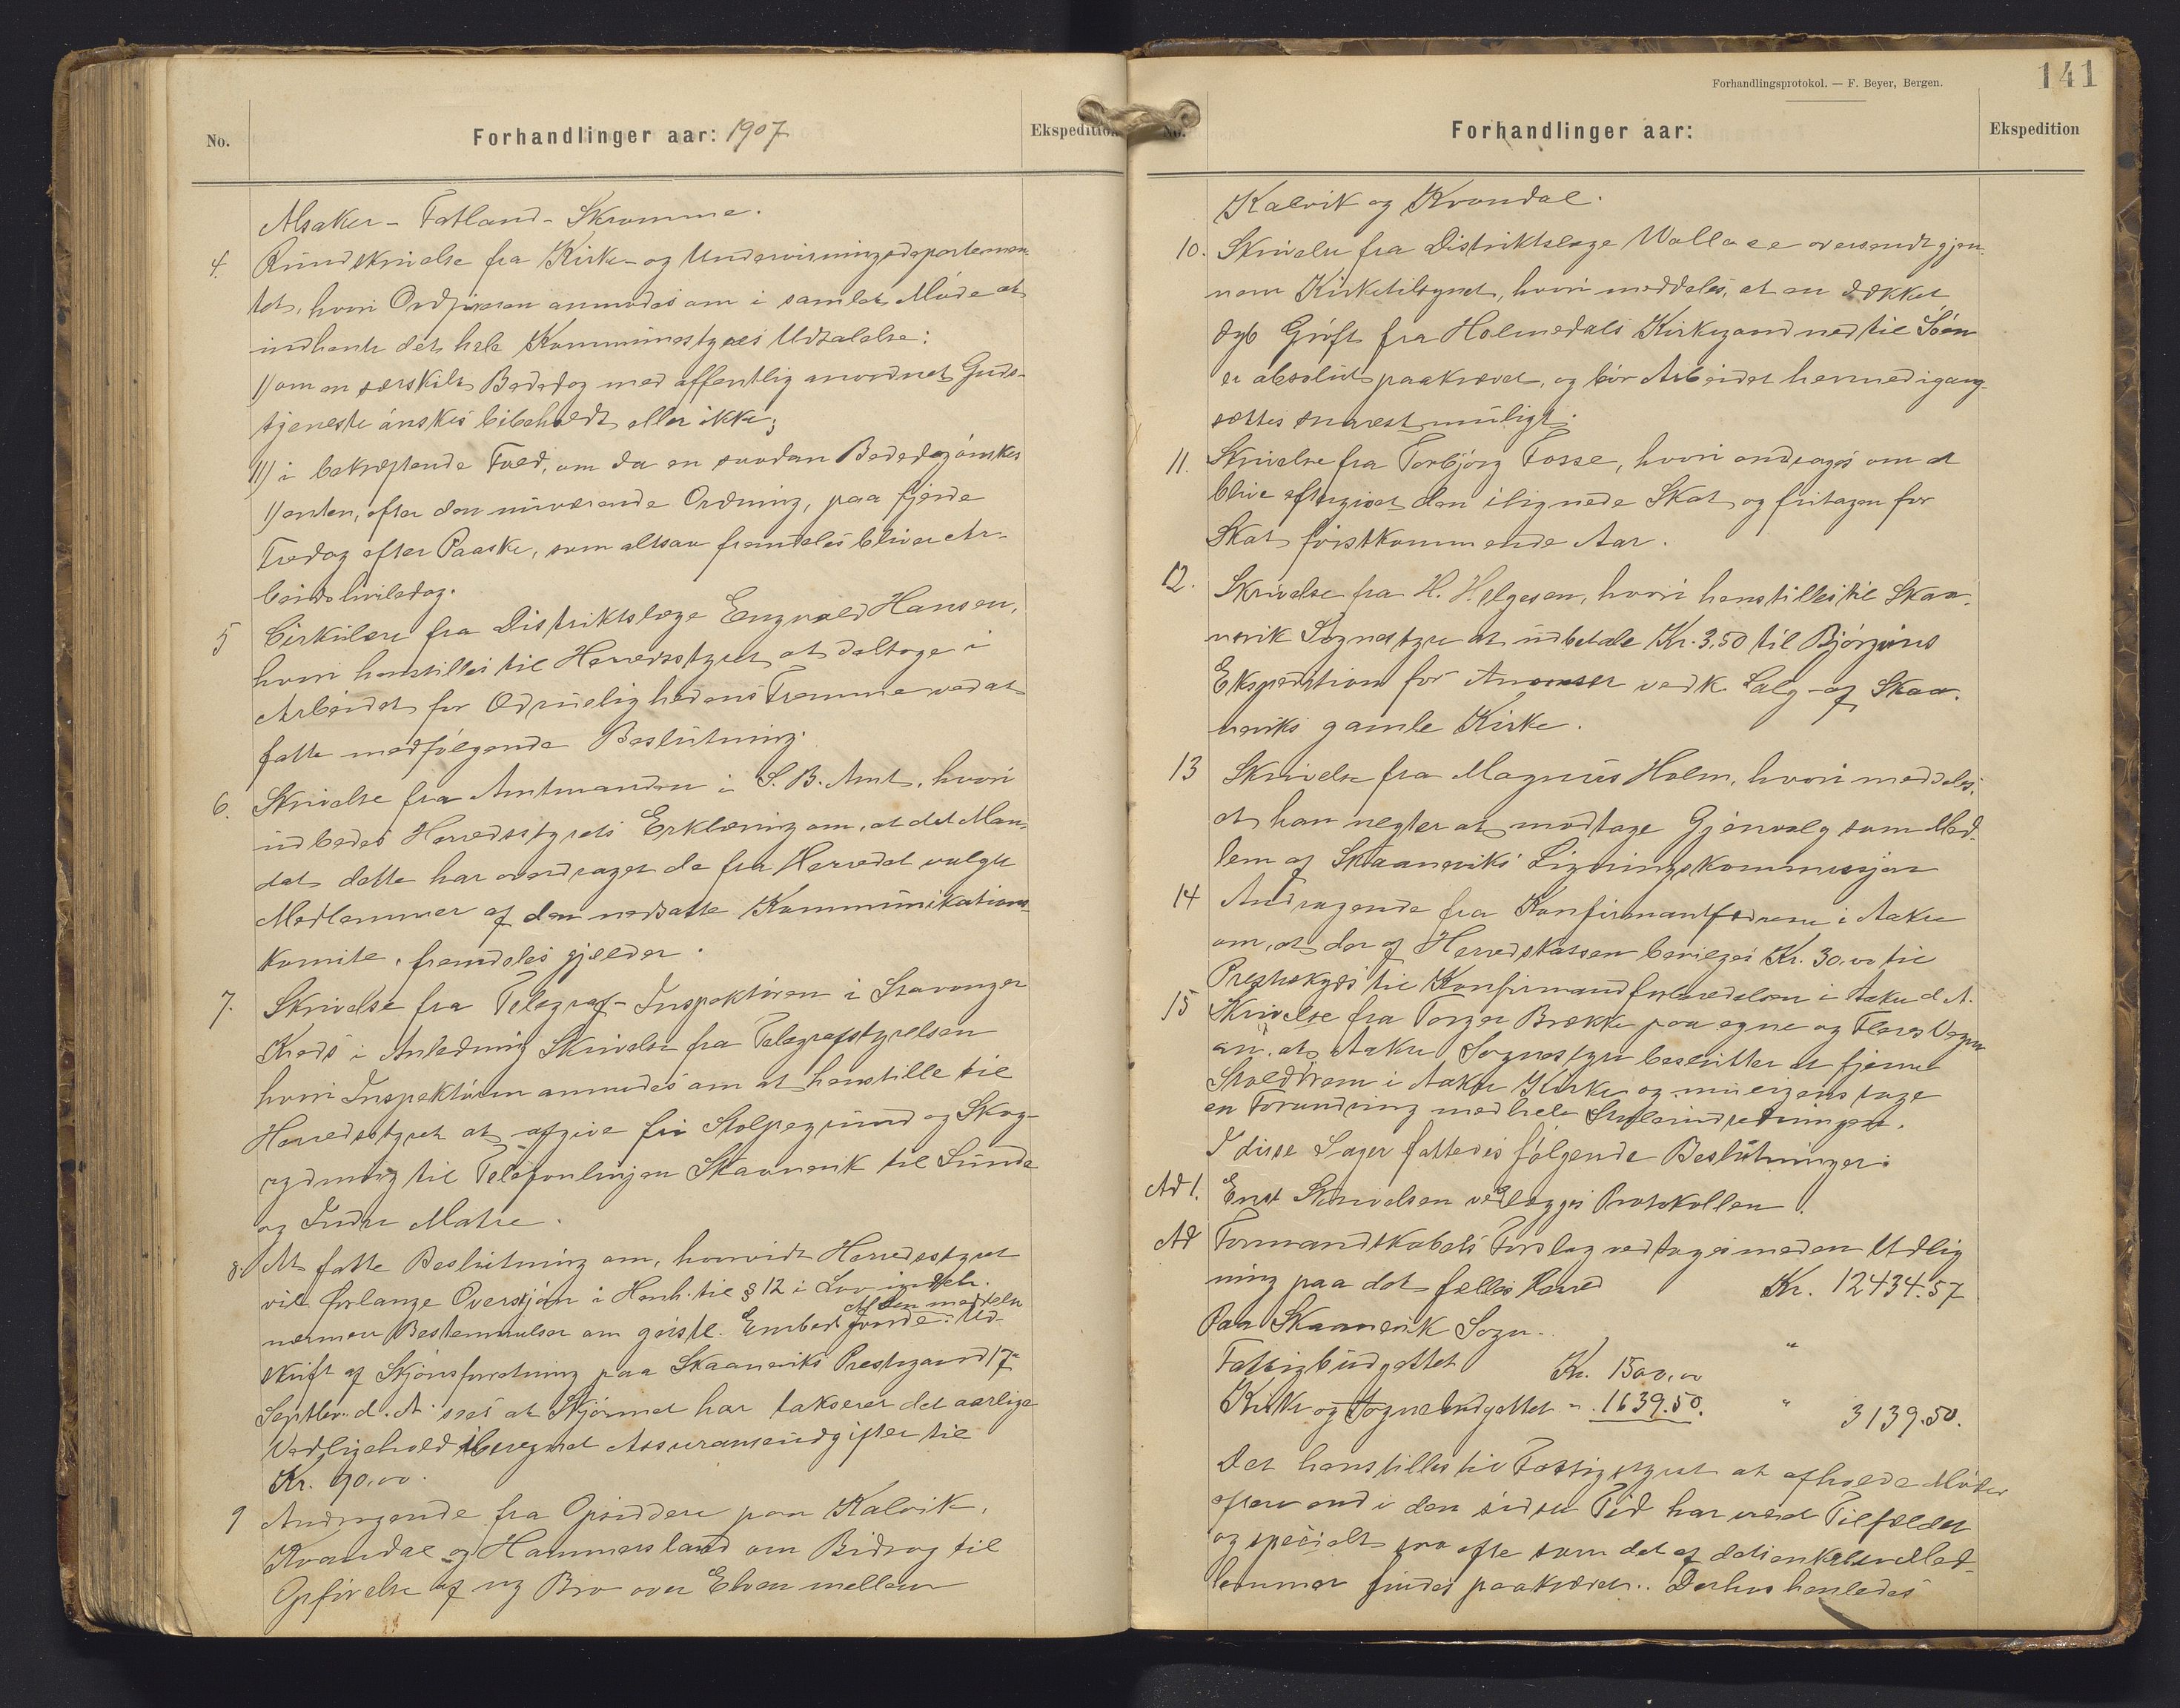 No.
Forhandlinger aar: 1907
Ekspedition
Alsaker - Fatland - Skromme.
4. Rundskrivelse fra Kirke- og Undervisningsdepartemen-
tet, hvori Ordføreren anmodes om i samlet Møde at
indhente det hele Kommunestyres Udtalelse:
I) om en særskilt Bededag med offentlig anordnet Guds-
tjeneste ønskes bibeholdt eller ikke;
II) i bekræftende Fald, om da en saadan Bededag ønskes
1) enten, efter den nuværende Ordning, paa fjerde
Fredag efter Paaske, som altsaa fremdeles bliver Ar-
beidshviledag.
5 Cirkulære fra Distriktslæge Engvald Hansen,
hvori henstilles til Herredsstyret at deltage i
Arbeidet for Ædruelighedens Fremme ved at
fatte medfølgende Beslutning.
6. Skrivelse fra Amtmanden i S. B. Amt, hvori
udbedes Herredsstyrets Erklæring om, at det Man-
dat dette har overdraget de fra Herredet valgte
Medlemmer af den nedsatte Kommunikations-
komite, fremdeles gjelder.
7. Skrivelse fra Telegraf-Inspektøren i Stavanger
Kreds i Anledning Skrivelse fra Telegrafstyrelsen
hvori Inspektøren anmodes om at henstille til
Herredsstyret at afgive fri Stolpegrund og Skog-
rydning til Telefonlinjen Skaanevik til Sunde
og Indre Matre.
8. At fatte Beslutning om, hvorvidt Herredsstyret
vil forlange Overskjøn i Henh. til § 12 i Lov indeh.
nærmere Bestemmelser om geistl. Embedsfonde. Ud-
Af den meddelte
skrift af Skjønsforretning paa Skaaneviks Prestegaard 17de
Septbr. d. A. sees at Skjønnet har takseret det aarlige
Vedligehold iberegnet Assuranseudgifter til
Kr. 90.00.
9 Andragende fra Opsiddere paa Kalvik,
Kvandal og Hammersland om Bidrag til
Opførelse af ny Bro over Elven mellem
Forhandlingsprotokol. — F. Beyer, Bergen.
141
No.
Forhandlinger aar:
Ekspedition
Kalvik og Kvandal.
10. Skrivelse fra Distriktslæge Wallace oversendt gjen-
nem Kirketilsynet, hvori meddeles, at en dækket
dyb Grøft fra Holmedals Kirkegaard ned til Søen
er absolut paakrævet, og bør Arbeidet hermed igang-
sættes snarest muligt.
11. Skrivelse fra Torbjørg Fosse, hvori andrages om at
blive eftergivet den ilignede Skat og fritagen for
Skat førstkommende Aar.
12. Skrivelse fra H. Helgesen, hvori henstilles til Skaa-
nevik Sognestyre at udbetale Kr. 3,50 til Bjørgvins
Ekspedition for Anonser vedk. Salg af Skaa-
neviks gamle Kirke.
13 Skrivelse fra Magnus Holm, hvori meddeles,
at han negter at modtage Gjenvalg som Med-
lem af Skaaneviks Ligningskommission
14 Andragende fra Konfirmantfædrene i Aakre
om, at der af Herredskassen bevilges Kr. 30.00 til
Presteskyds til Konfirmandforberedelsen i Aakre d. A.
15 Skrivelse fra Torger Brekke paa egne og Fleres Vegne
om, at Aakre Sognestyre beslutter at fjerne
i Aakre Kirke og muligens tage
en Forandring med hele Stoleindretningen.
I disse Sager fattedes følgende Beslutninger:
Ad 1. Enst Skrivelsen vedlægges Protokollen.
Ad Formandskabets Forslag vedtages med en Udlig
ning paa det fælles Herred Kr. 12434.57
Paa Skaanevik Sogn. "
Fattigbudgettet Kr. 1500.00
Kirke og Sognebudgettet " 1639.50. " 3139.50.
Det henstilles til Fattigstyret at afholde Møder
oftere end i den sidste Tid har været Tilfældet
og specielt saa ofte som det af dets enkelte Med-
lemmer findes paakrævet. Derhos henledes